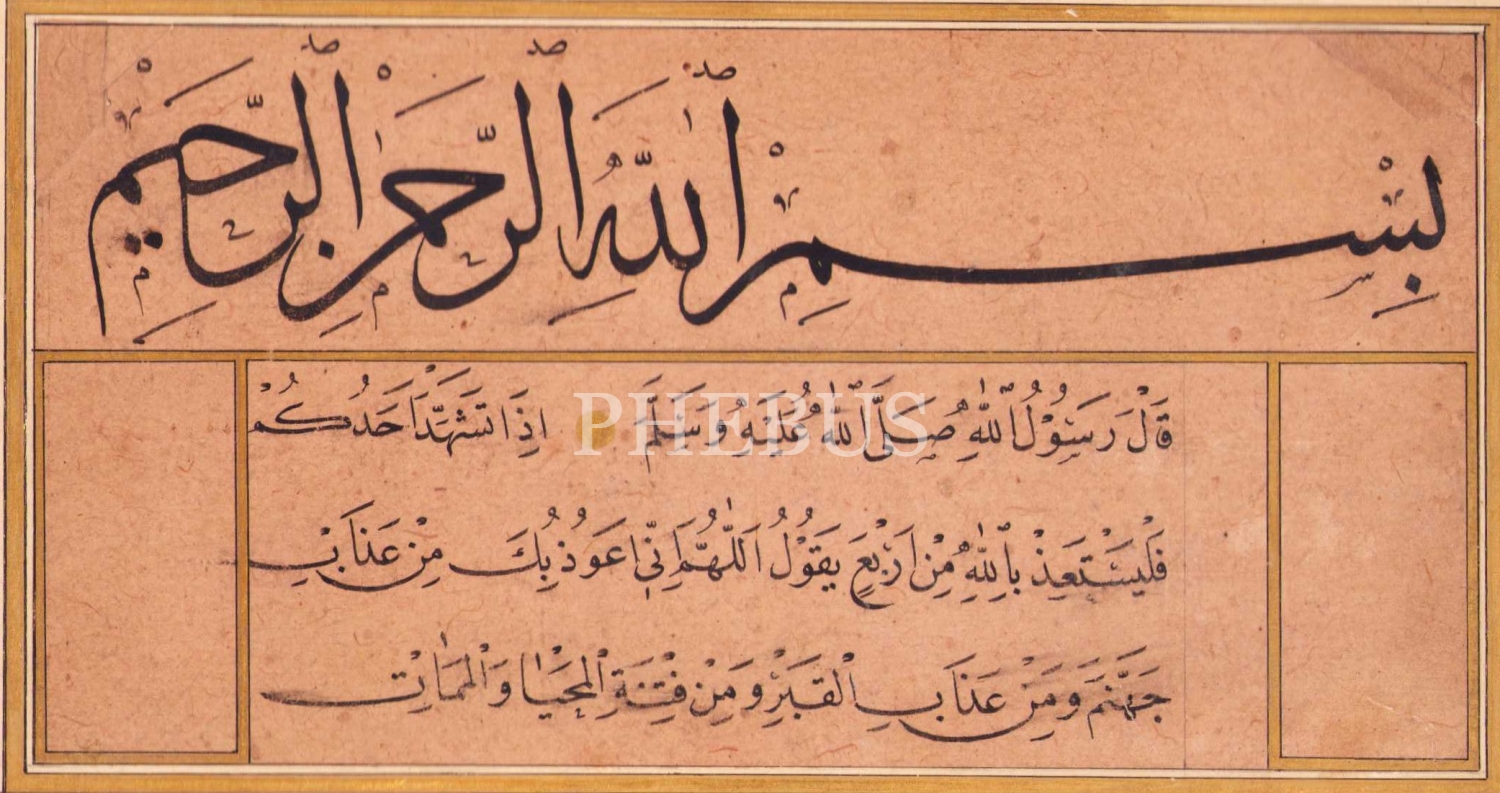 بِسْمِ اللّٰهِ الرَّحْمٰنِ الرَّحِيمِ
قَالَ رَسُوْلُ اللّٰهِ صَلَّى اللّٰهُ عَلَيْهِ وَسَلَّمَ اِذَا تَشَهَّدَ اَحَدُكُمْ
PHEBUS
فَلْيَسْتَعِذْ بِاللّٰهِ مِنْ اَرْبَعٍ يَقُوْلُ اَللّٰهُمَّ اِنِّي اَعُوذُ بِكَ مِنْ عَذَابِ
جَهَنَّمَ وَمِنْ عَذَابِ الْقَبْرِ وَمِنْ فِتْنَةِ الْمَحْيَا وَالْمَمَاتِ